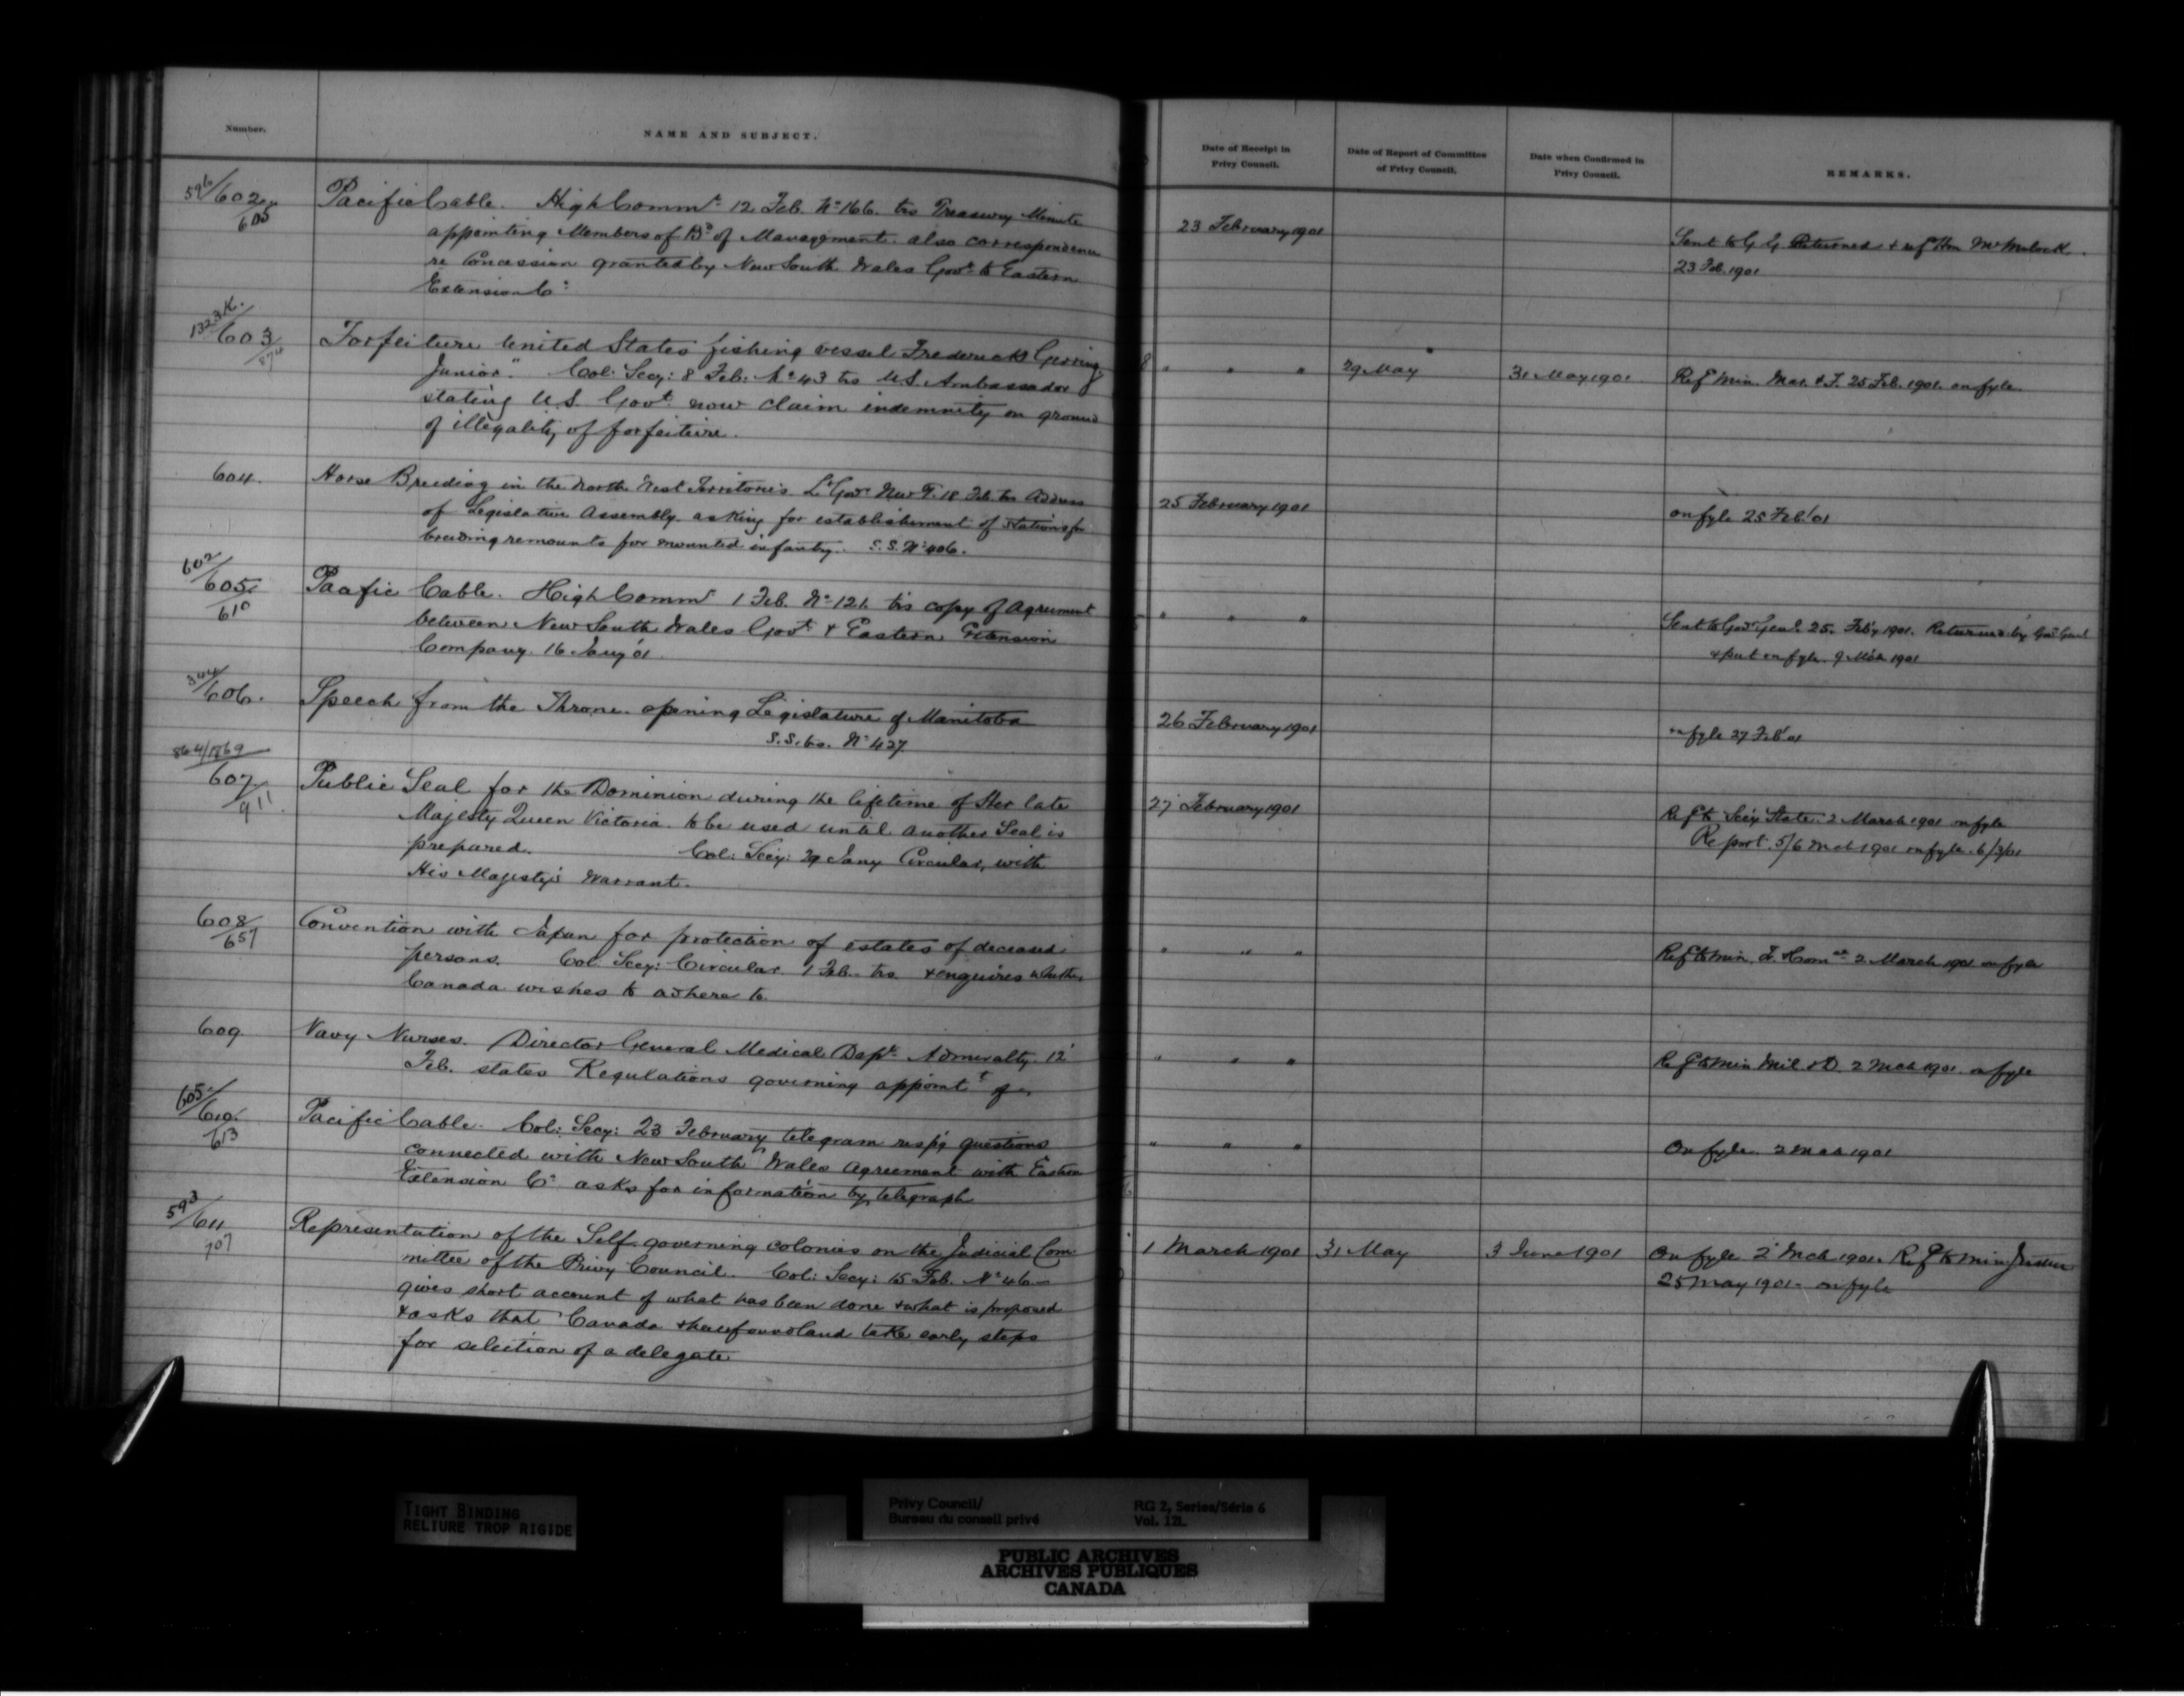 Number.
NAME AND SUBJECT.
Date of Receipt in
Privy Council.
Date of Report of Committee
of Privy Council.
Date when Confirmed in
Privy Council.
REMARKS.
596/602
605
Pacific Cable. High Commr. 12 Feb. No 166. trs Treasury Minute
appointing Members of Bd of Management. also correspondence
re Concession granted by New South Wales Govt. to Eastern
Extension Co.
23 February 1901
Sent to G. G. Returned & ref Hon Mr Mulock.
23 Feb. 1901
1323K.
603
874
Forfeiture United States fishing vessel Frederick Gerring
Junior." Col: Secy: 8 Feb: No 43 trs U.S. Ambassador
stating U.S. Govt. now claim indemnity on ground
of illegality of forfeiture.
" " "
29 May
31 May 1901.
Ref Min. Mar. & F. 25 Feb. 1901. on fyle.
604.
Horse Breeding in the North West Territories. Lt Govr N.W.T. 18 Feb. trs Address
of Legislative Assembly. asking for establishment of stations for
breeding remounts for mounted infantry. S.S. No 406.
25 February 1901
on fyle 25 Feb. '01
602/
605
610
Pacific Cable. High Commr 1 Feb. No 121. trs copy of Agreement
between New South Wales Govt. & Eastern Extension
Company. 16 Jany '01.
" " "
Sent to Govr Genl. 25. Feby 1901. Returned by Govr Genl
& put on fyle. 9 Mch 1901
344/606.
Speech from the Throne. opening Legislature of Manitoba
S.S. trs. No 427.
26 February 1901
on fyle 27 Feb' 01
864/1869
607
911.
Public Seal for the Dominion during the lifetime of Her late
Majesty Queen Victoria. to be used until another Seal is
prepared. Col: Secy: 29 Jany Circular, with
His Majesty's Warrant.
27 February 1901
Ref to Secy State. 2 March 1901 on fyle
Report. 5/6 Mch 1901 on fyle. 6/3/01
608
657
Convention with Japan for protection of estates of deceased
persons. Col. Secy: Circular 1 Feb. trs. & enquires whether
Canada wishes to adhere to.
" " "
Ref to Min. 2 March 1901 on fyle
609.
Navy Nurses. Director General Medical Dept. Admiralty. 12
Feb. states Regulations governing appoint t of "
" " "
Ref to Min Mil. & D. 2 Mch 1901. on fyle
605/
610.
613
Pacific Cable. Col: Secy: 23 February telegram resp'g questions
connected with New South Wales Agreement with Eastern
Extension Co. asks for information by telegraph
" " "
On fyle. 2 Mch 1901
593/611
707
Representation of the Self governing colonies on the Judicial Com-
mittee of the Privy Council. Col: Secy: 15 Feb. No 46.
gives short account of what has been done & what is proposed
& asks that Canada & Newfoundland take early steps
for selection of a delegate
1 March 1901
31 May
3 June 1901
On fyle 2 Mch 1901. Ref to Min Justice
25 May 1901. on fyle
TIGHT BINDING
RELIURE TROP RIGIDE
Privy Council/
Bureau du conseil privé
RG 2, Series/Série 6
Vol. 121.
PUBLIC ARCHIVES
ARCHIVES PUBLIQUES
CANADA